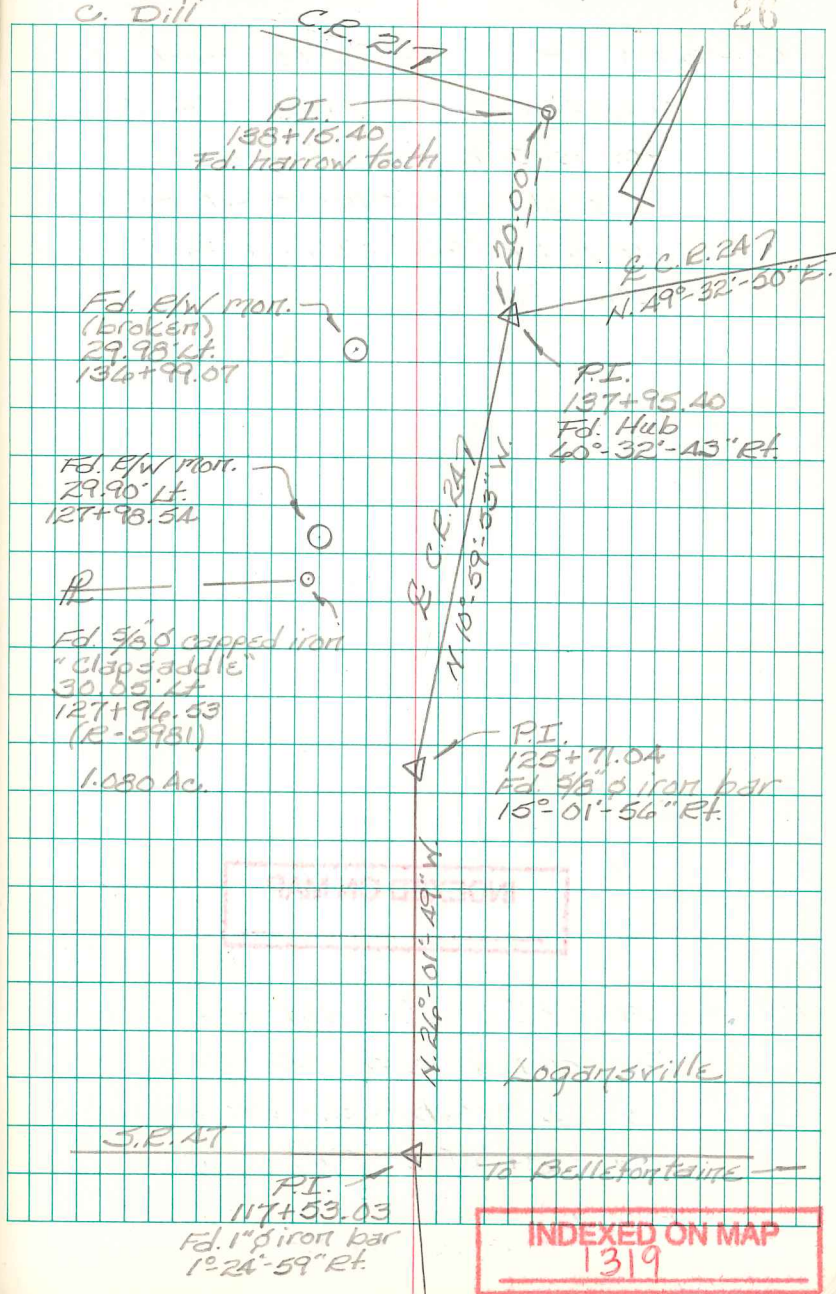 C. Dill
26
C.R. 217
P.I.
138+15.40
Fd. harrow tooth
20.00'
℄ C.R. 247
N. 49°-32'-50" E.
Fd. R/W mon.
(broken)
29.98' Lt.
136+99.07
P.I.
137+95.40
Fd. Hub
60°-32'-43" Rt.
Fd. R/W mon.
29.90' Lt.
127+98.54
℄ C.R. 247
N. 10°-59'-53" W.
PL
Fd. 5/8" ø capped iron
"Clapsaddle"
30.05' Lt.
127+96.53
(R-5981)
1.080 Ac.
P.I.
125+71.04
Fd. 5/8" ø iron bar
15°-01'-56" Rt.
INDEXED ON MAP
N. 26°-01'-49" W.
Logansville
S.R. 47
To Bellefontaine
P.I.
117+53.03
Fd. 1" ø iron bar
1°-26'-59" Rt.
INDEXED ON MAP
1319